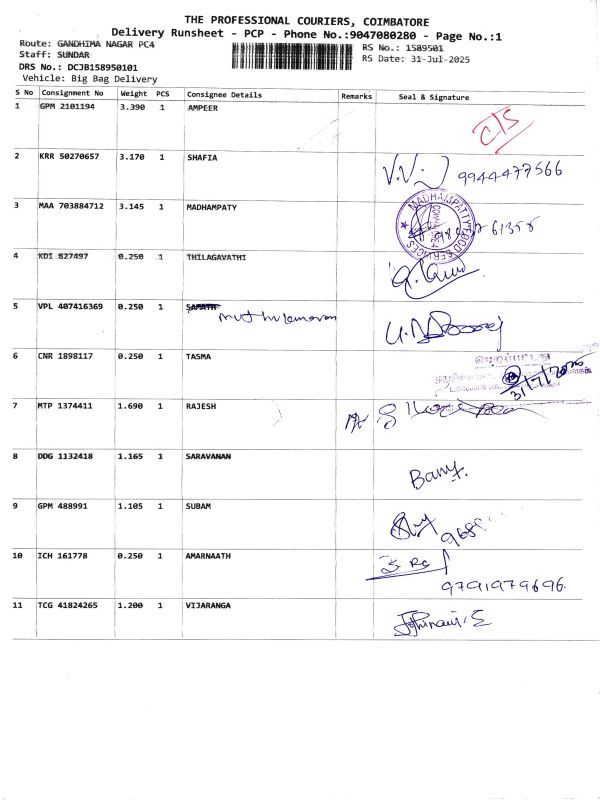 THE PROFESSIONAL COURIERS, COIMBATORE
Delivery Runsheet - PCP - Phone No.:9047080280 - Page No.:1
Route: GANDHIMA NAGAR PC4
RS No.: 1589501
Staff: SUNDAR
RS Date: 31-Jul-2025
DRS No.: DCJB158950101
Vehicle: Big Bag Delivery
S No Consignment No Weight PCS Consignee Details Remarks Seal & Signature
1 GPM 2101194 3.390 1 AMPEER
C/S
2 KRR 50270657 3.170 1 SHAFIA
9944477566
3 MAA 703884712 3.145 1 MADHAMPATY
MADHAMPATTY FOOD SERVICES
4 KDI 827497 0.250 1 THILAGAVATHI
5 VPL 407416369 0.250 1 SAMATH
6 CNR 1898117 0.250 1 TASMA
31/7/2025
7 MTP 1374411 1.690 1 RAJESH
8 DDG 1132418 1.165 1 SARAVANAN
9 GPM 488991 1.105 1 SUBAM
10 ICH 161778 0.250 1 AMARNAATH
9791979696
11 TCG 41824265 1.200 1 VIJARANGA